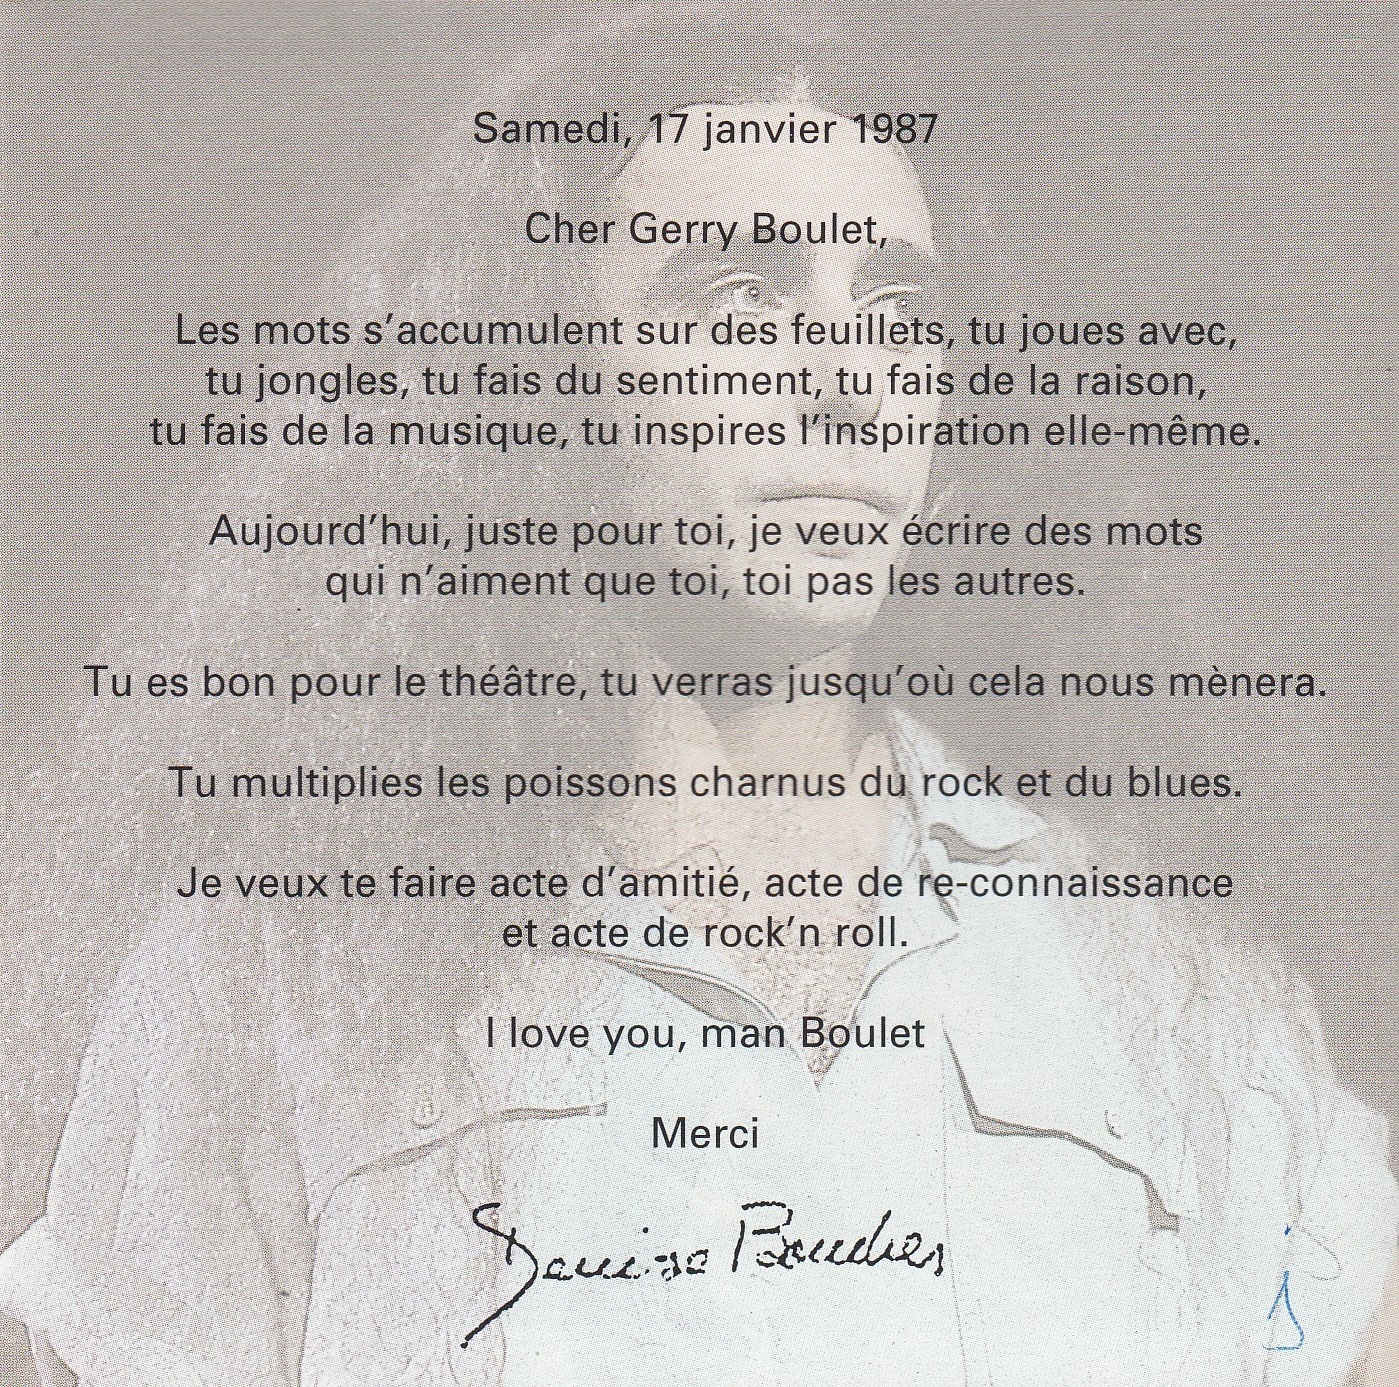 Samedi, 17 janvier 1987
Cher Gerry Boulet,
Les mots s'accumulent sur des feuillets, tu joues avec,
tu jongles, tu fais du sentiment, tu fais de la raison,
tu fais de la musique, tu inspires l'inspiration elle-même.
Aujourd'hui, juste pour toi, je veux écrire des mots
qui n'aiment que toi, toi pas les autres.
Tu es bon pour le théâtre, tu verras jusqu'où cela nous mènera.
Tu multiplies les poissons charnus du rock et du blues.
Je veux te faire acte d'amitié, acte de re-connaissance
et acte de rock'n roll.
I love you, man Boulet
Merci
Denise Boucher